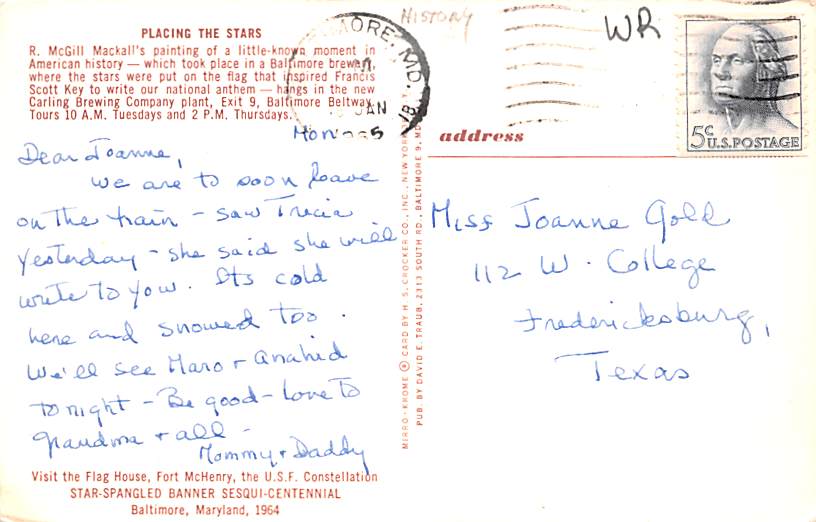 PLACING THE STARS
R. McGill Mackall's painting of a little-known moment in
American history — which took place in a Baltimore brewery
where the stars were put on the flag that inspired Francis
Scott Key to write our national anthem — hangs in the new
Carling Brewing Company plant, Exit 9, Baltimore Beltway.
Tours 10 A.M. Tuesdays and 2 P.M. Thursdays.
HISTORY
WR
MORE, MD.
JAN
5c
U.S. POSTAGE
address
Mon
Dear Joanne,
We are to soon leave
on the train - saw Tricia
yesterday - she said she will
write to you. Its cold
here and snowed too.
We'll see Maro + Anahid
tonight - Be good - Love to
grandma + all -
Mommy + Daddy
Visit the Flag House, Fort McHenry, the U.S.F. Constellation
STAR-SPANGLED BANNER SESQUI-CENTENNIAL
Baltimore, Maryland, 1964
MIRRO-KROME ® CARD BY H. S. CROCKER CO., INC., NEW YORK
PUB. BY DAVID E. TRAUB, 2313 SOUTH RD., BALTIMORE 9, MD.
Miss Joanne Gold
112 W. College
Fredericksburg,
Texas